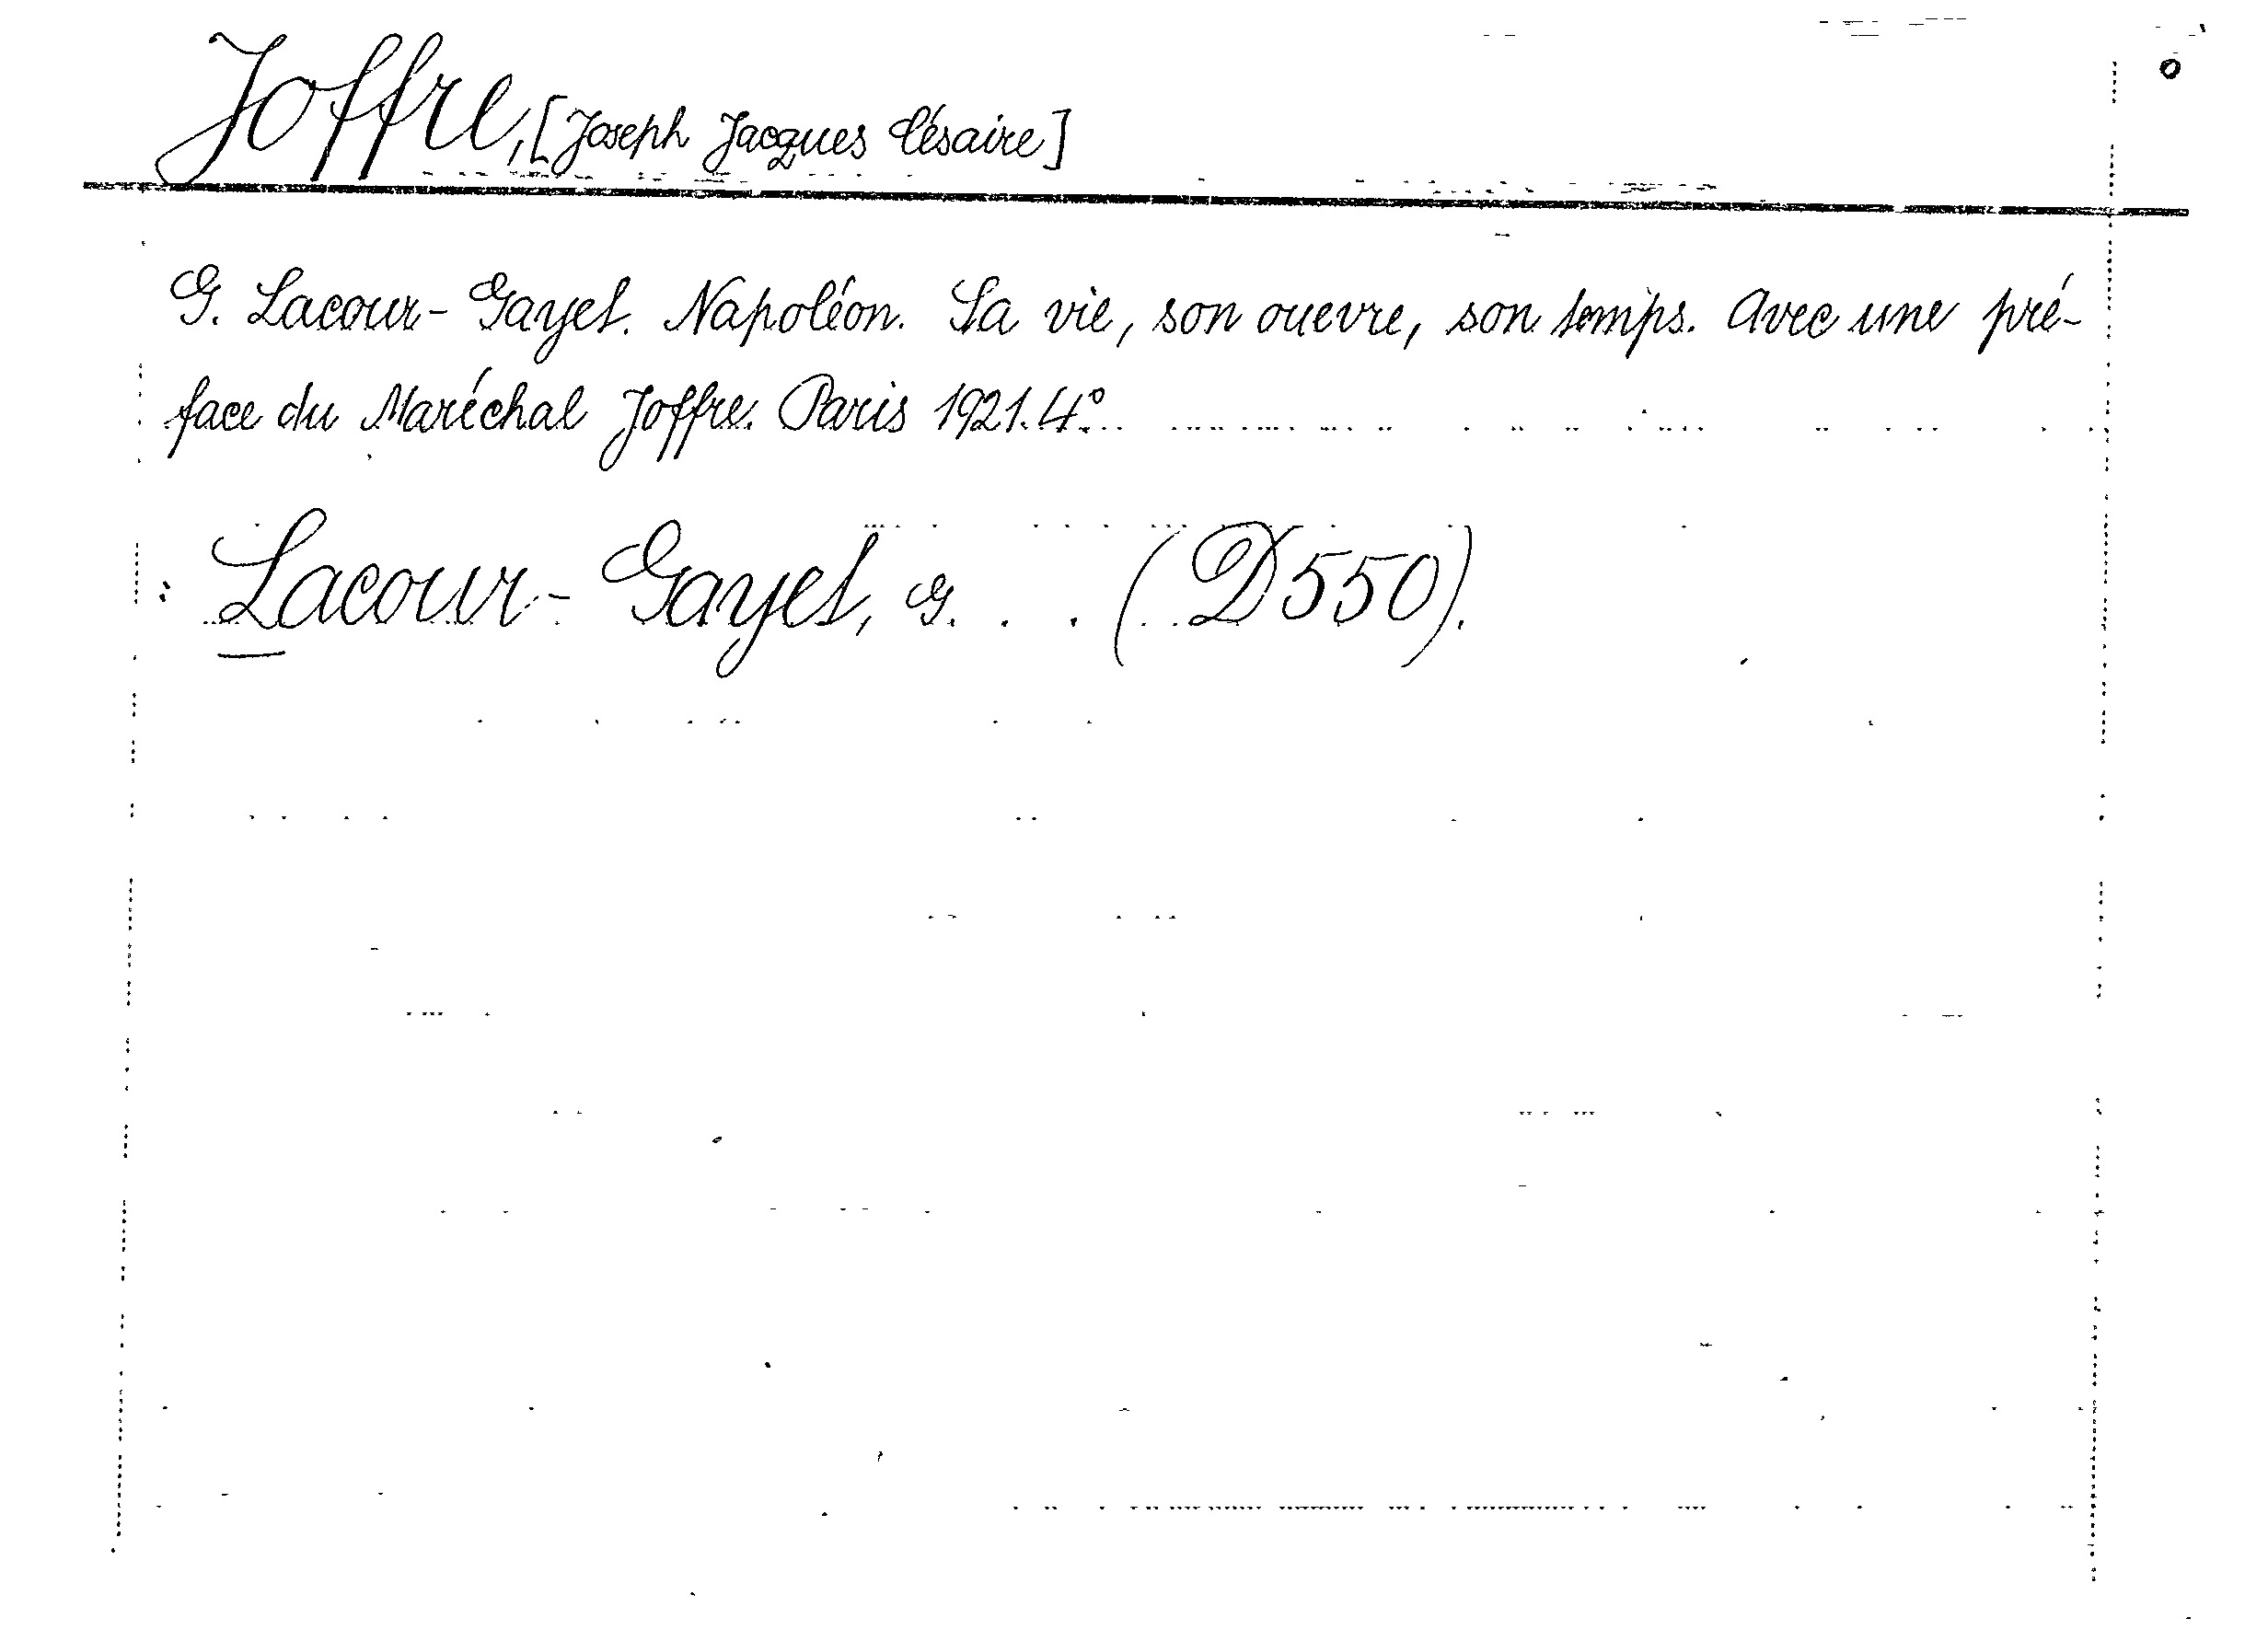 Joffre, [Joseph Jacques Césaire]
G. Lacour-Gayet. Napoléon. Sa vie, son ouevre, son temps. Avec une pré-
face du Maréchal Joffre. Paris 1921. 4°
: Lacour-Gayet, G. . . (D 550).